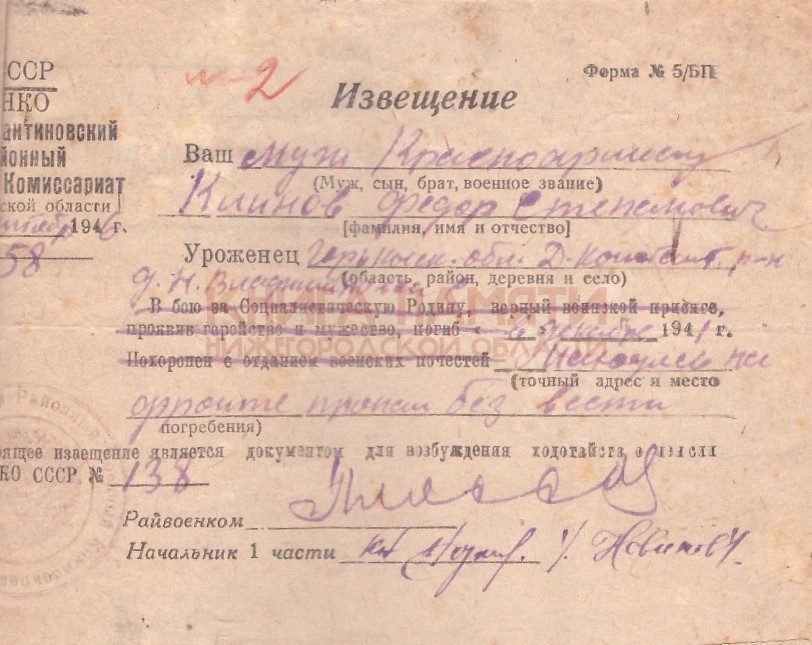 ССР
НКО
антиновский
йонный
Комиссариат
ской области
194 6 г.
58
№-2
Форма № 5/БП
Извещение
Ваш муж Красноармеец
(Муж, сын, брат, военное звание)
Климов Федор Степанович
[фамилия, имя и отчество]
Уроженец Горьковск. обл. Д-Констант. р-н
(область, район, деревня и село)
д. Н. Владимировка
В бою за Социалистическую Родину, верный воинской присяге,
проявив геройство и мужество, погиб « » декабре 1941 г.
КНИГА ПАМЯТИ
НИЖЕГОРОДСКОЙ ОБЛАСТИ
Похоронен с отданием воинских почестей находясь на
(точный адрес и место
фронте пропал без вести
погребения)
оящее извещение является документом для возбуждения ходотайств о пенсии
КО СССР № 138
Райвоенком
Начальник 1 части